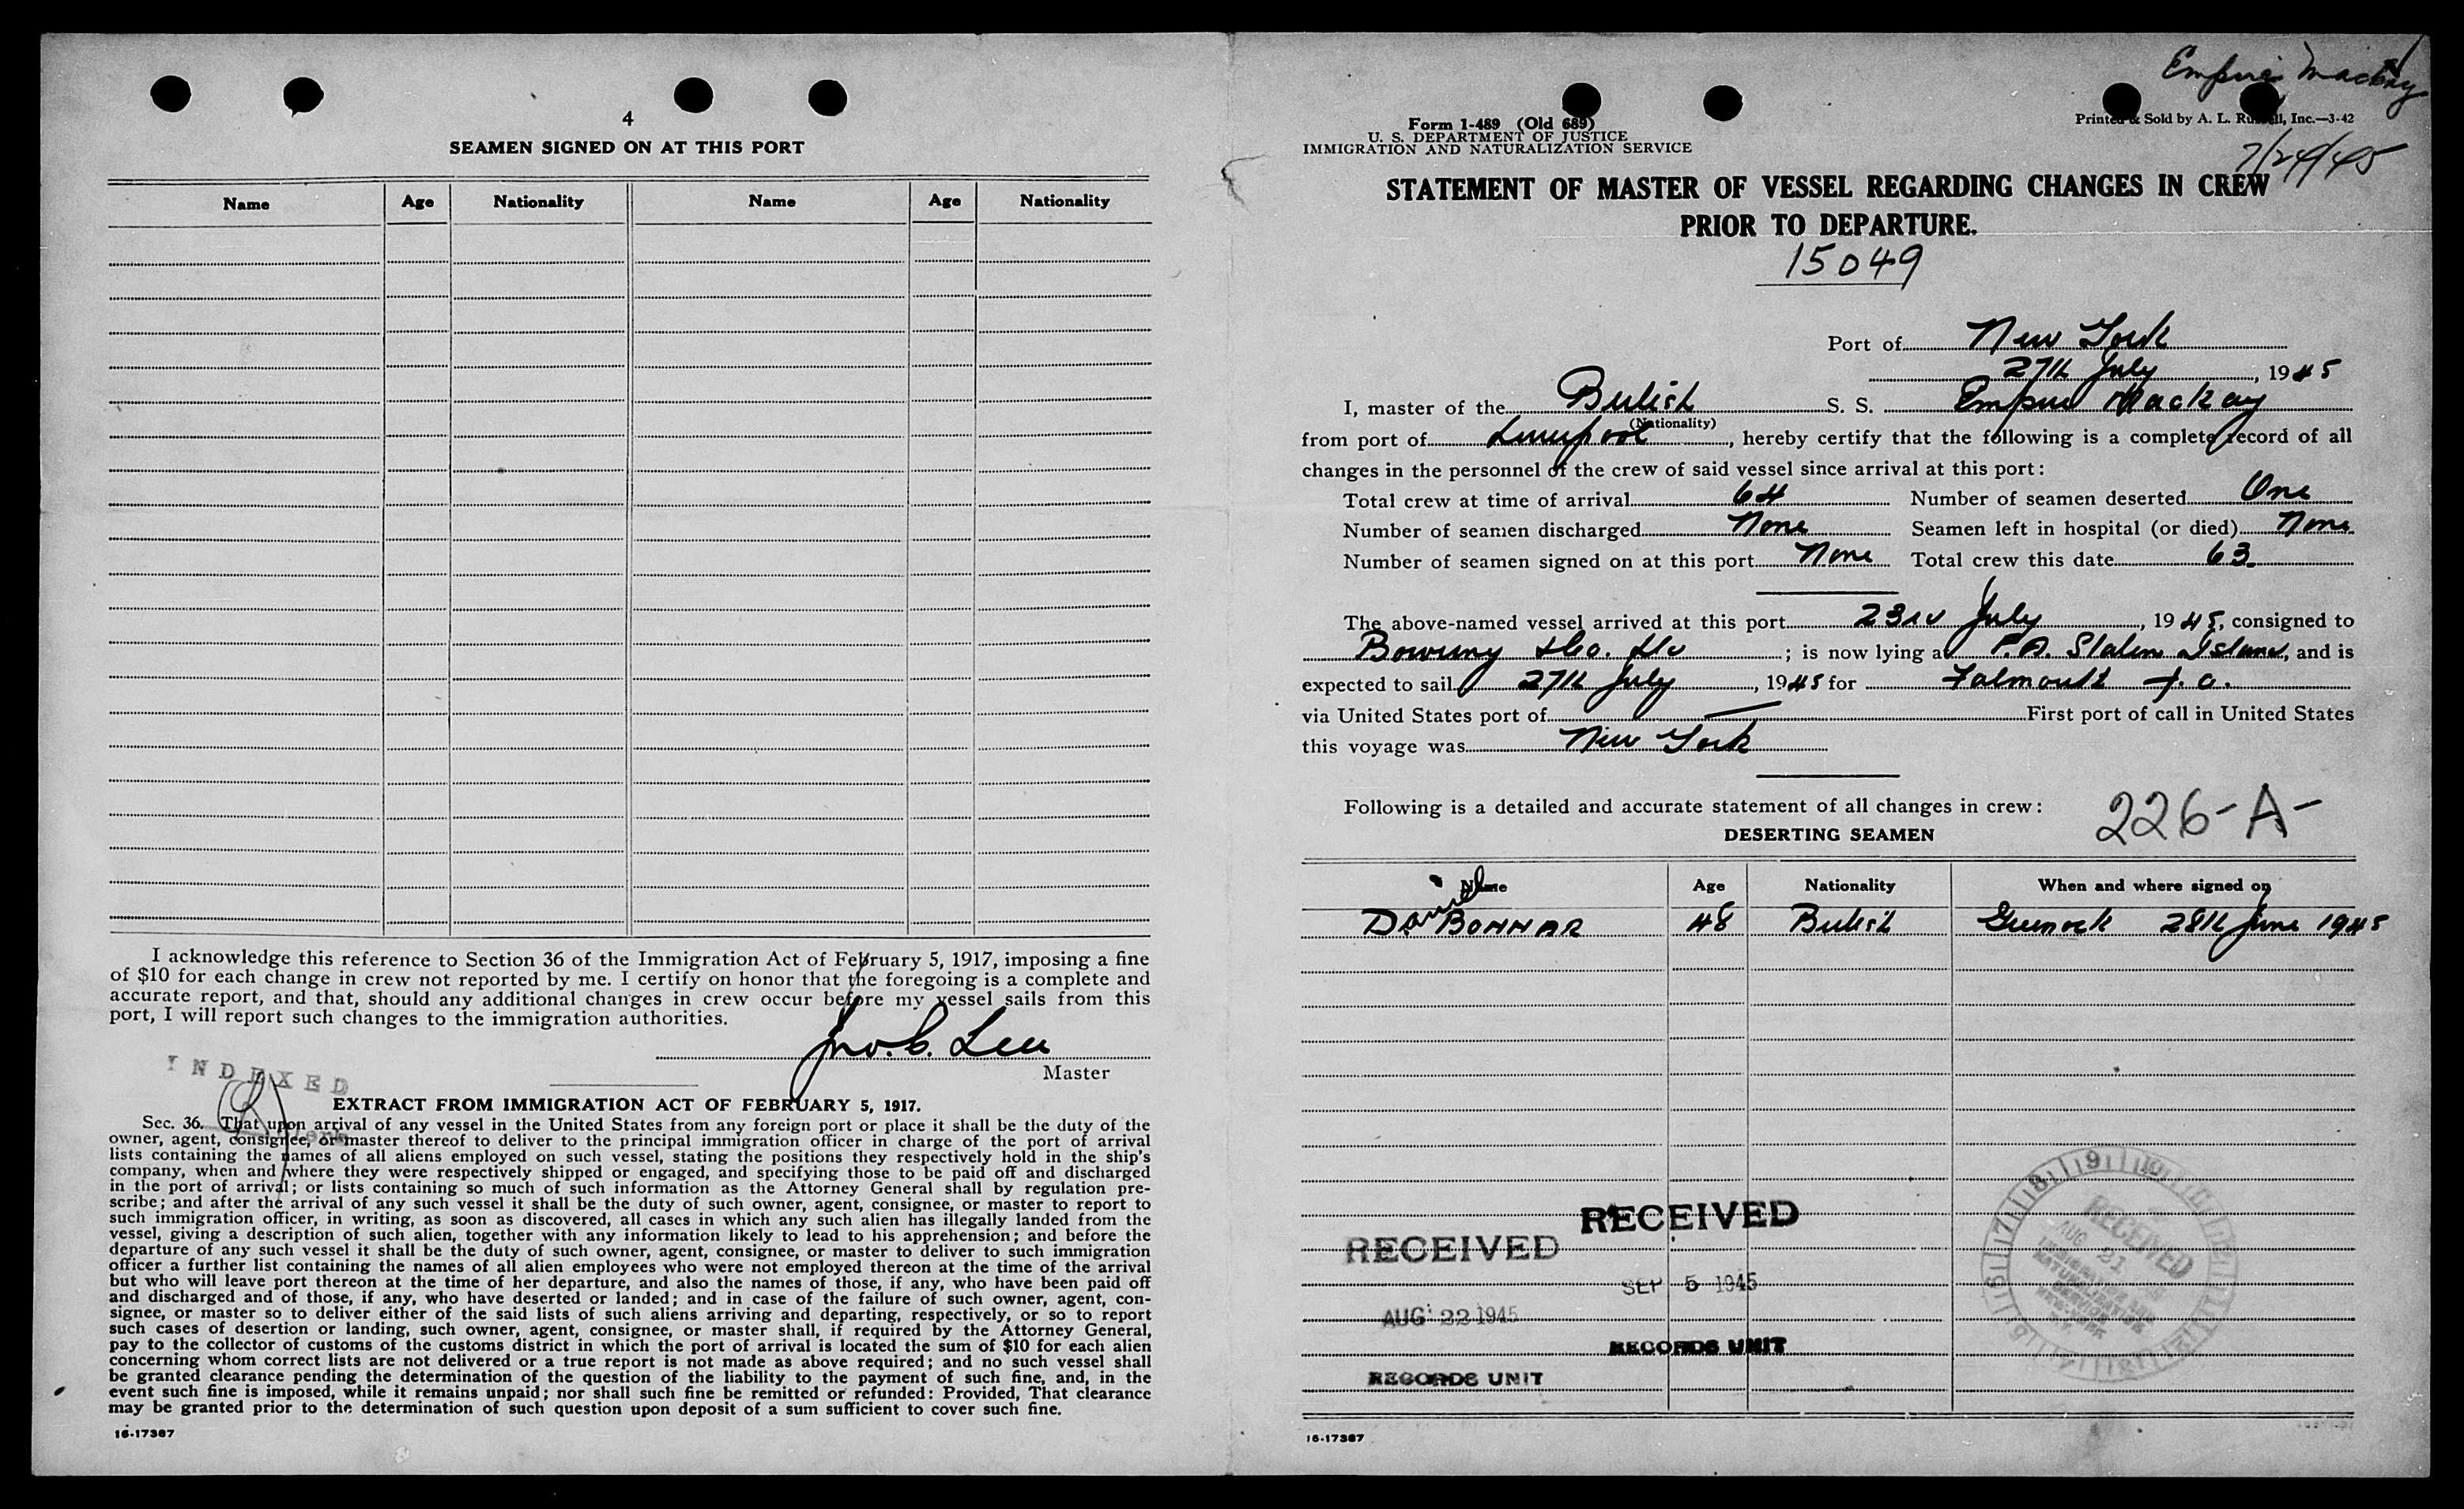 4
SEAMEN SIGNED ON AT THIS PORT
Name Age Nationality Name Age Nationality
I acknowledge this reference to Section 36 of the Immigration Act of February 5, 1917, imposing a fine
of $10 for each change in crew not reported by me. I certify on honor that the foregoing is a complete and
accurate report, and that, should any additional changes in crew occur before my vessel sails from this
port, I will report such changes to the immigration authorities.
Jno. C. Lee
Master
INDEXED
EXTRACT FROM IMMIGRATION ACT OF FEBRUARY 5, 1917.
Sec. 36. That upon arrival of any vessel in the United States from any foreign port or place it shall be the duty of the
owner, agent, consignee, or master thereof to deliver to the principal immigration officer in charge of the port of arrival
lists containing the names of all aliens employed on such vessel, stating the positions they respectively hold in the ship's
company, when and where they were respectively shipped or engaged, and specifying those to be paid off and discharged
in the port of arrival; or lists containing so much of such information as the Attorney General shall by regulation pre-
scribe; and after the arrival of any such vessel it shall be the duty of such owner, agent, consignee, or master to report to
such immigration officer, in writing, as soon as discovered, all cases in which any such alien has illegally landed from the
vessel, giving a description of such alien, together with any information likely to lead to his apprehension; and before the
departure of any such vessel it shall be the duty of such owner, agent, consignee, or master to deliver to such immigration
officer a further list containing the names of all alien employees who were not employed thereon at the time of the arrival
but who will leave port thereon at the time of her departure, and also the names of those, if any, who have been paid off
and discharged and of those, if any, who have deserted or landed; and in case of the failure of such owner, agent, con-
signee, or master so to deliver either of the said lists of such aliens arriving and departing, respectively, or so to report
such cases of desertion or landing, such owner, agent, consignee, or master shall, if required by the Attorney General,
pay to the collector of customs of the customs district in which the port of arrival is located the sum of $10 for each alien
concerning whom correct lists are not delivered or a true report is not made as above required; and no such vessel shall
be granted clearance pending the determination of the question of the liability to the payment of such fine, and, in the
event such fine is imposed, while it remains unpaid; nor shall such fine be remitted or refunded: Provided, That clearance
may be granted prior to the determination of such question upon deposit of a sum sufficient to cover such fine.
16-17387
Empire Mackay
Form 1-489 (Old 689)
U. S. DEPARTMENT OF JUSTICE
IMMIGRATION AND NATURALIZATION SERVICE
Printed & Sold by A. L. Russell, Inc.—3-42
7/24/45
STATEMENT OF MASTER OF VESSEL REGARDING CHANGES IN CREW
PRIOR TO DEPARTURE.
15049
Port of New York
27th July, 1945
I, master of the British S. S. Empire Mackay
(Nationality)
from port of Liverpool, hereby certify that the following is a complete record of all
changes in the personnel of the crew of said vessel since arrival at this port:
Total crew at time of arrival 64 Number of seamen deserted One
Number of seamen discharged None Seamen left in hospital (or died) None
Number of seamen signed on at this port None Total crew this date 63
The above-named vessel arrived at this port 23rd July, 1945, consigned to
Bowring & Co. Ltd; is now lying at Staten Island, and is
expected to sail 27th July, 1945 for Falmouth f.o.
via United States port of — First port of call in United States
this voyage was New York
Following is a detailed and accurate statement of all changes in crew:
226-A-
DESERTING SEAMEN
Name Age Nationality When and where signed on
Daniel BONNAR 48 British Greenock 28th June 1945
RECEIVED
RECEIVED
SEP 5 1945
AUG 22 1945
RECORDS UNIT
RECORDS UNIT
RECEIVED
AUG 21
IMMIGRATION AND
NATURALIZATION
SERVICE
NEW YORK
16-17387